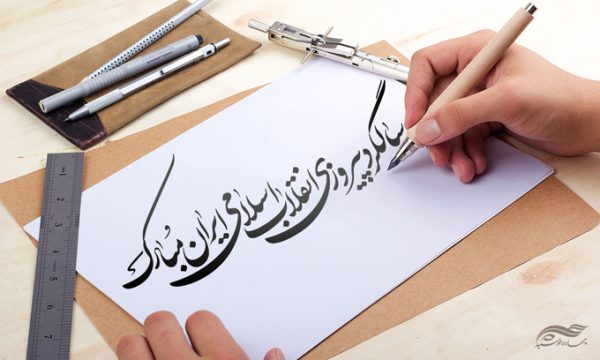 سالگرد پیروزی انقلاب اسلامی ایران مبارک